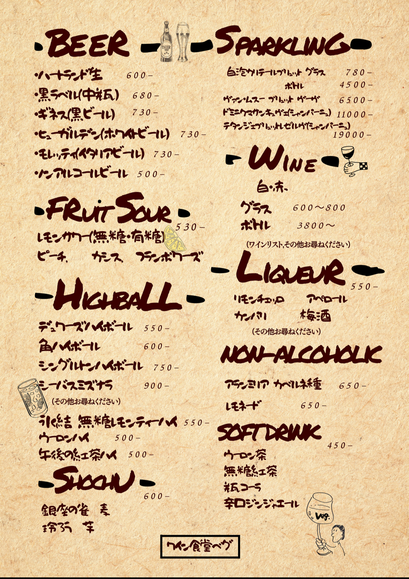 BEER
・ハートランド生 600-
・黒ラベル(中瓶) 680-
・ギネス(黒ビール) 730-
・ヒューガルデン(ホワイトビール) 730-
・モレッティ(イタリアビール) 730-
・ノンアルコールビール 500-
FRUIT SOUR
530-
レモンサワー(無糖・有糖)
ピーチ、カシス フランボワーズ
HIGHBALL
デュワーズハイボール 550-
角ハイボール 600-
シングルトンハイボール 750-
シーバスミズナラ 900-
(その他お尋ねください)
氷結 無糖レモンティーハイ 550-
ウーロンハイ 500-
午後の紅茶ハイ 500-
SHOCHU
600-
麦
芋
SPARKLING
グラス 780-
ボトル 4500-
6500-
11000-
19000-
WINE
白・赤
グラス 600〜800
ボトル 3800〜
(ワインリスト,その他お尋ねください)
LIQUEUR
550-
リモンチェッロ アペロール
カンパリ 梅酒
(その他お尋ねください)
NON-ALCOHOLIC
カベルネ種 650-
レモネード 650-
SOFT DRINK
450-
ウーロン茶
無糖紅茶
瓶コーラ
辛口ジンジャエール
ワイン食堂ベヴ